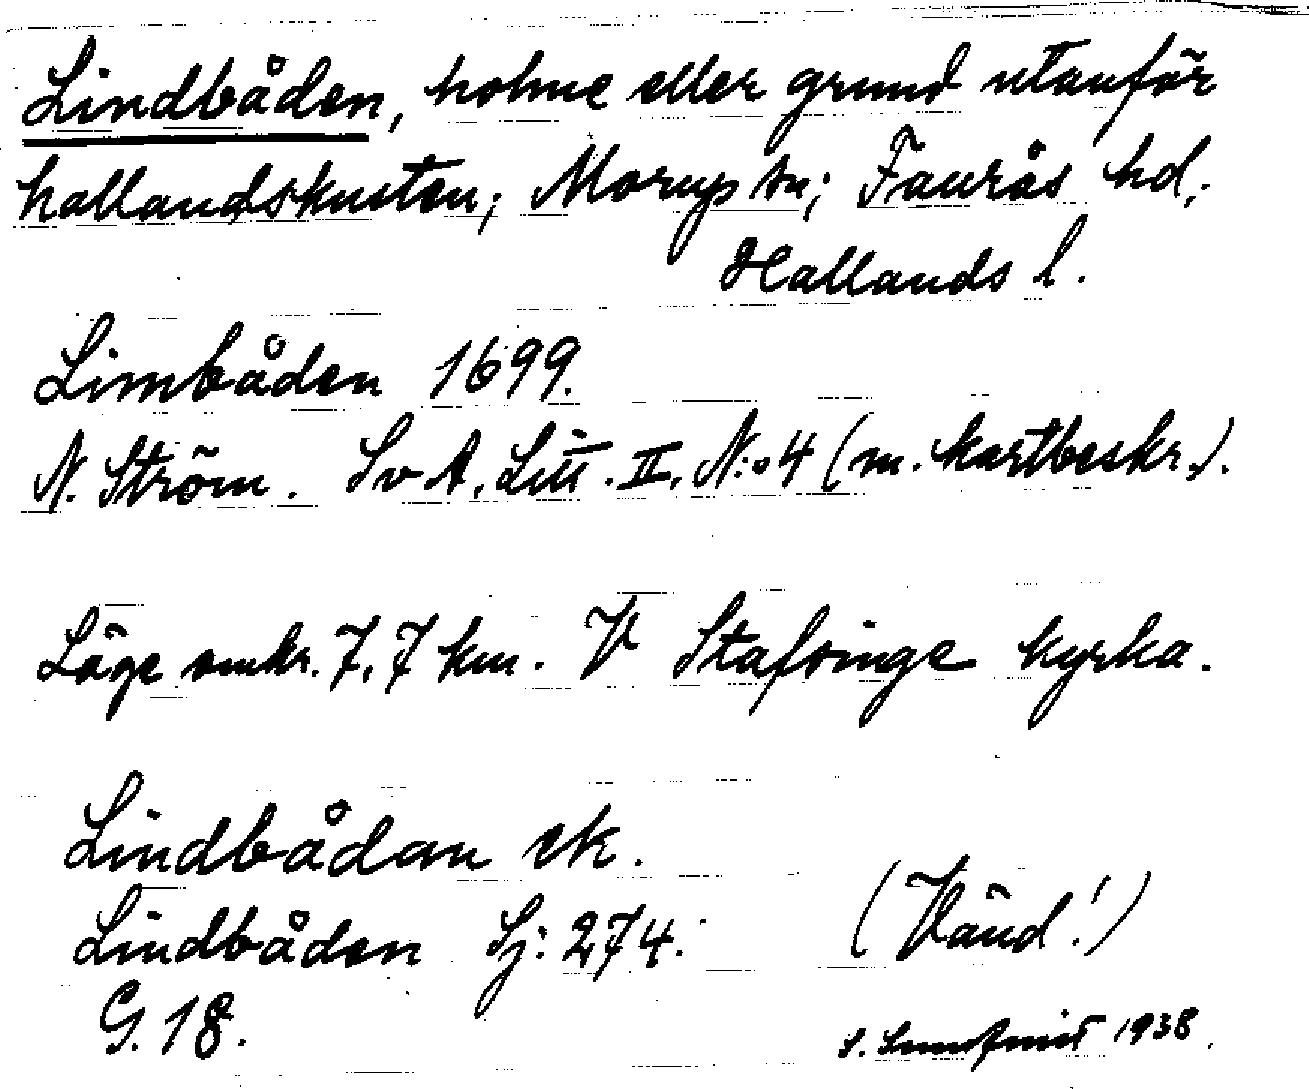 Lindbåden, holme eller grund utanför
hallandskusten; Morups sn; Faurås hd,
Hallands l.
Limbåden 1699.
N. Ström. SvA, Litt. II, N:o 4 (m. kartbeskr.).
Läge omkr. 7,7 km. V Stafsinge kyrka.
Lindbådan ek.
Lindbåden Sj: 274.
(Vänd!)
G. 18.
S. 1938.